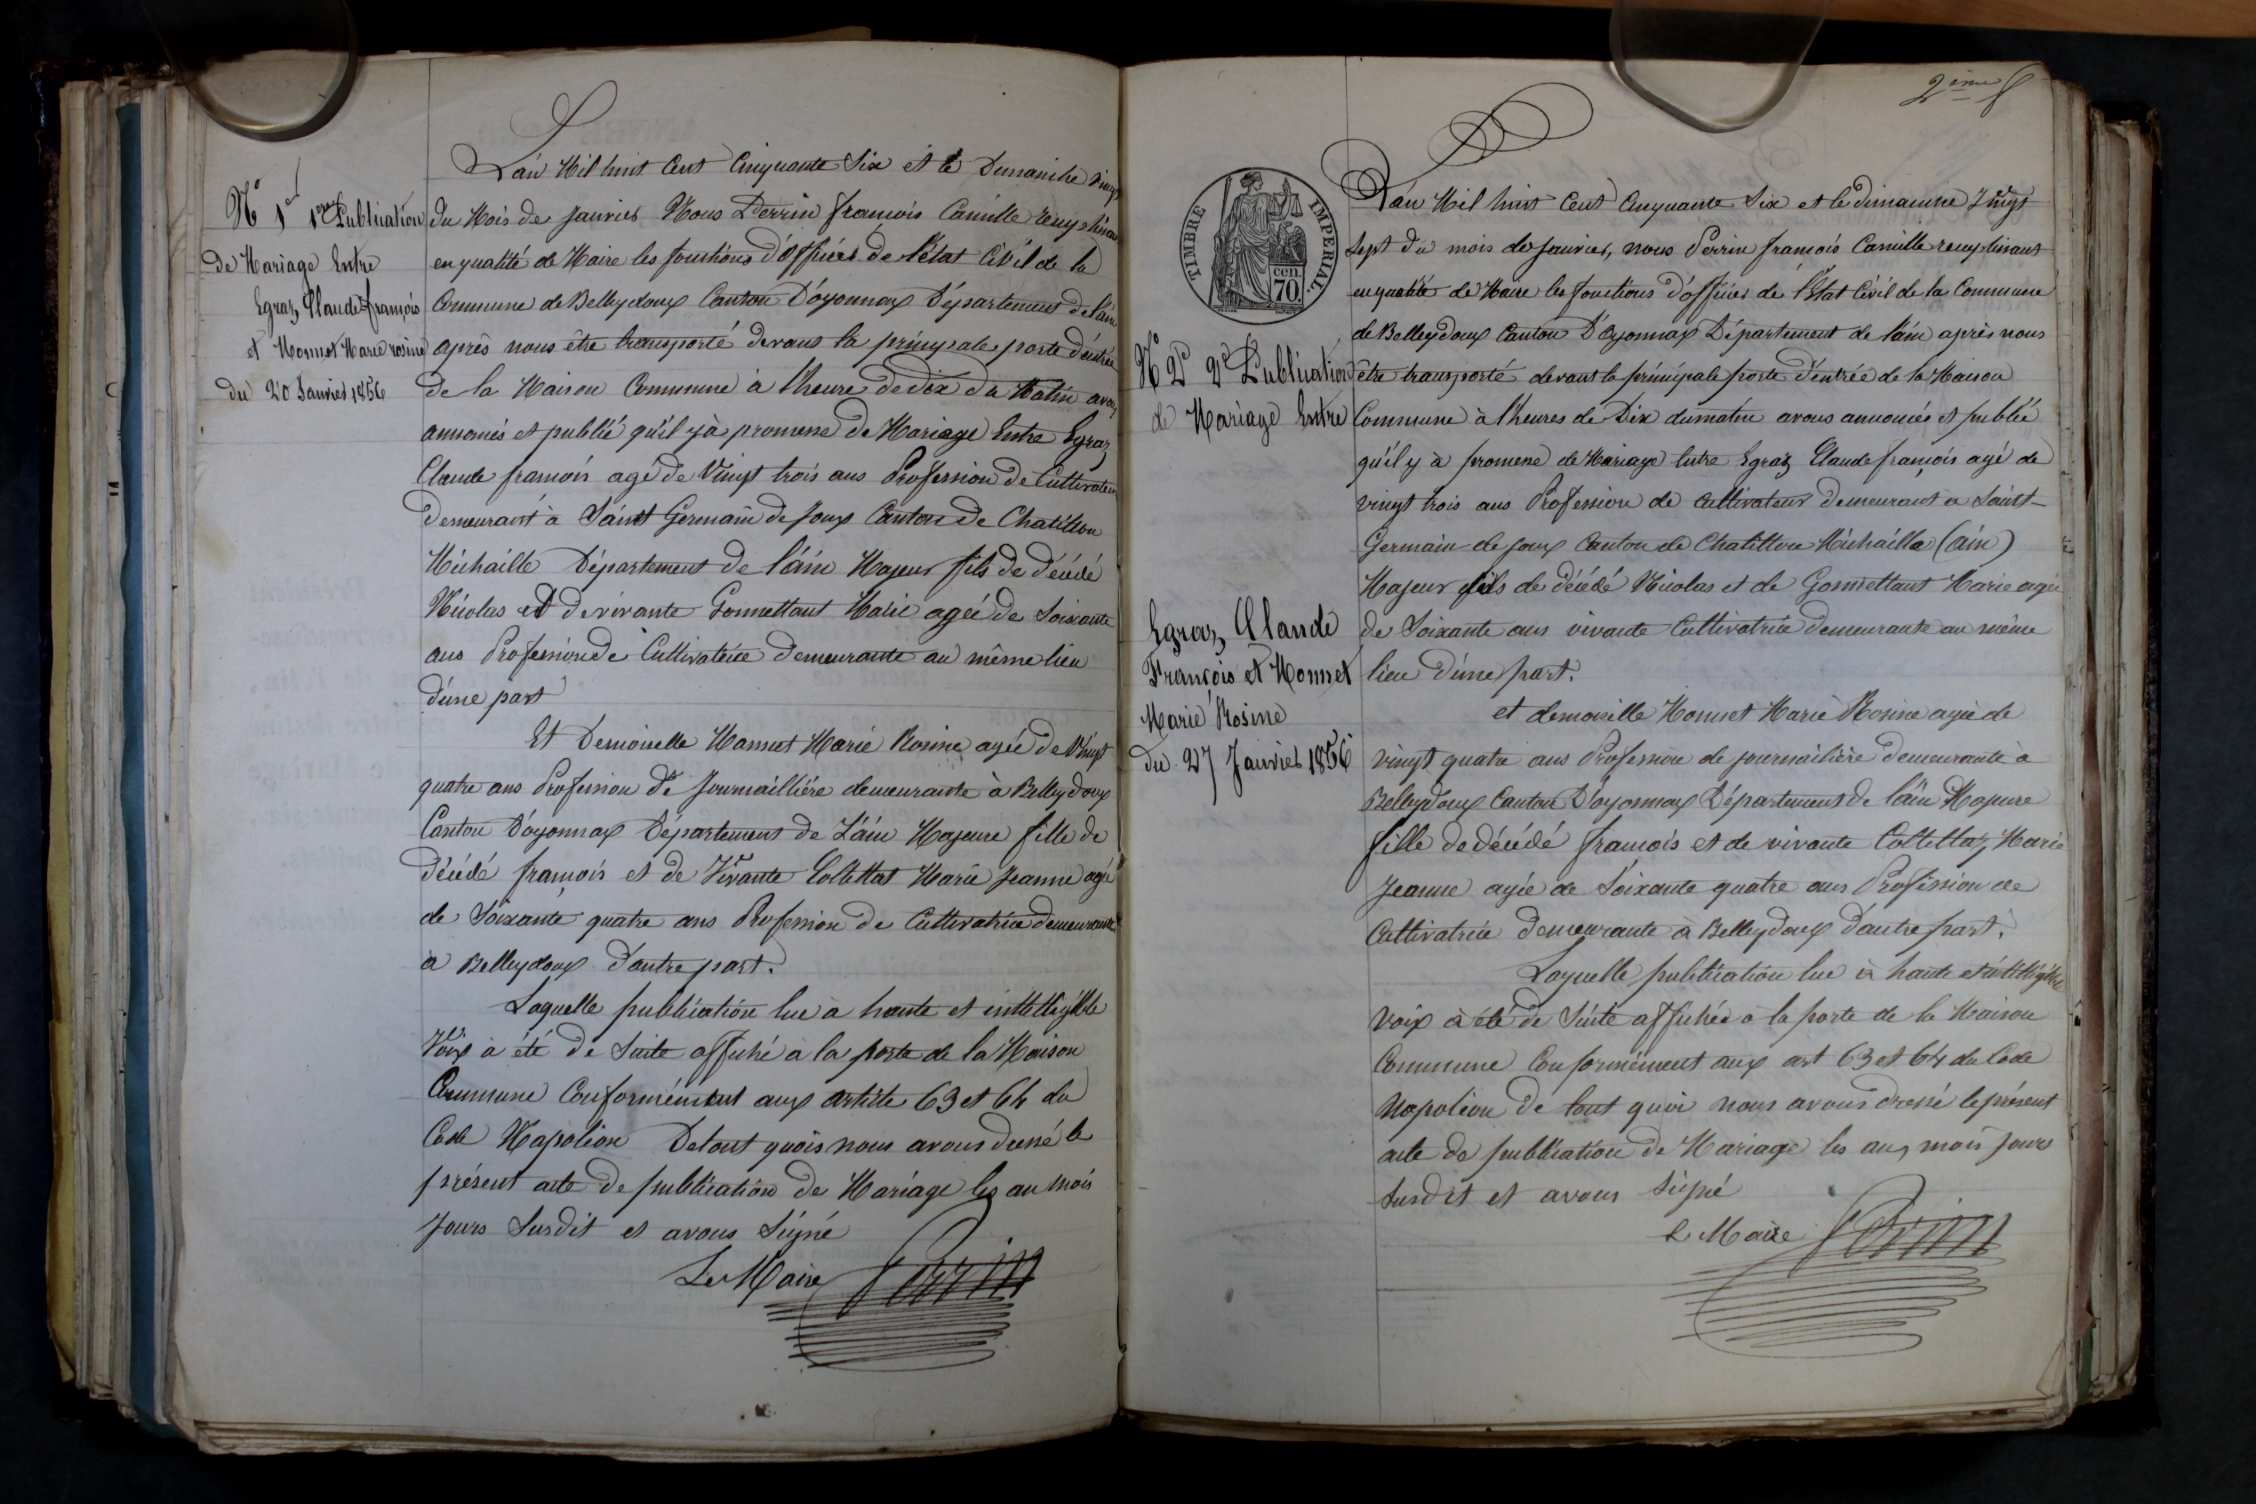 L'an Mil huit Cent Cinquante Six et le Dimanche vingt
du Mois de Janvier Nous Perrin françois Camille remplissant
en qualité de Maire les fonctions d'officier de l'état Civil de la
Commune de Belleydoux Canton D'oyonnax Département de l'ain
après nous être transporté devant la principale porte d'entrée
de la Maison Commune à l'heure de dix du Matin avons
annoncés et publié qu'il y à promesse de Mariage Entre Egraz
Claude françois agé de Vingt trois ans Profession de Cultivateur
demeurant à Saint Germain de Joux Canton de Chatillon
Michaille Département de l'ain Majeur fils de décédé
Nicolas et de vivante Gonnettant Marie agée de Soixante
ans Profession de Cultivatrice demeurante au même lieu
d'une part
Et Demoiselle Monnet Marie Rosine agée de Vingt
quatre ans Profession de Journaillière demeurante à Belleydoux
Canton D'oyonnax Département de L'ain Majeure fille de
décédé françois et de Vivante Collettaz Marie Jeanne agé
de Soixante quatre ans Profession de Cultivatrice demeurante
à Belleydoux d'autre part.
Laquelle publication lue à haute et inttelligible
Voix à été de Suite affiché à la porte de la Maison
Commune Conformément aux article 63 et 64 du
Code Napoléon De tout quois nous avons dressé le
présent acte de publication de Mariage les an mois
Jours Susdit et avons Signé
Le Maire Perrin
N° 1er 1ère Publication
de Mariage Entre
Egraz Claude françois
et Monnet Marie rosine
du 20 Janvier 1856
2ème f
TIMBRE IMPERIAL
70 cen.
L'an Mil huit Cent Cinquante Six et le dimanche Vingt
Sept du mois de Janvier, nous Perrin françois Camille remplissant
en qualité de Maire les fonctions d'officier de l'Etat Civil de la Commune
de Belleydoux Canton D'Oyonnax Département de l'ain après nous
être transporté devant la principale porte d'entrée de la Maison
Commune à l'heures de Dix du matin avons annoncés et publié
qu'il y à promesse de Mariage Entre Egraz Claude françois agé de
vingt trois ans Profession de Cultivateur demeurant à Saint-
Germain-de-Joux Canton de Chatillon Michaille (ain)
Majeur fils de décédé Nicolas et de Gonnettant Marie agée
de Soixante ans vivante Cultivatrice demeurante au même
lieu d'une part.
et demoiselle Monnet Marie Rosine agée de
vingt quatre ans Profession de journailière demeurante à
Belleydoux Canton D'oyonnax Département de l'ain Majeure
fille de décédé françois et de vivante Collettaz Marie
Jeanne agée de Soixante quatre ans Profession de
Cultivatrice demeurante à Belleydoux d'autre part.
Laquelle publication lue à haute et intelligible
Voix à été de Suite affichée à la porte de la Maison
Commune Conformément aux art 63 et 64 du Code
Napoléon de tout quoi nous avons dressé le présent
acte de publication de Mariage les an, mois Jours
Susdit et avons Signé
le Maire Perrin
N° 2e 2e Publication
de Mariage Entre
Egraz Claude
François et Monnet
Marie Rosine
du 27 Janvier 1856